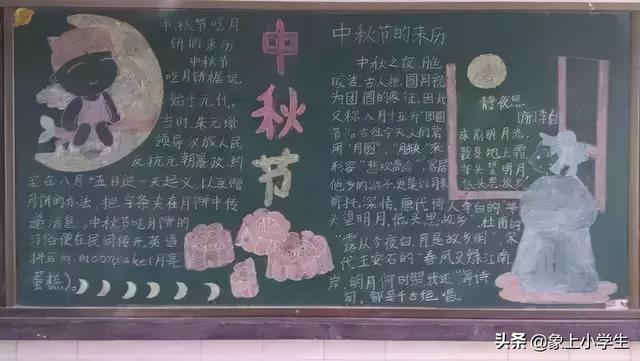 中秋节吃月
饼的来历
中秋节
吃月饼据说
始于元代，
当时，朱元璋
领导汉族人民
反抗元朝暴政，约
定在八月十五日这一天起义，以互赠
月饼的办法，把字条夹在月饼中传
递消息。中秋节吃月饼的
习俗便在民间传开，英语
拼写为：mooncake（月亮
蛋糕）。
中
秋
节
中秋节的来历
中秋之夜，月色
皎洁，古人把圆月视
为团圆的象征，因此
又称八月十五为“团圆
节”。古往今来人们常用
“月圆”、“月缺”来
形容“悲欢离合”，客居
他乡的游子更是以月来
寄托深情。唐代诗人李白的“举
头望明月，低头思故乡”，杜甫的
“露从今夜白，月是故乡明”，宋
代王安石的“春风又绿江南
岸，明月何时照我还”等诗
句，都是千古绝唱。
静夜思
[唐]李白
床前明月光，
疑是地上霜。
举头望明月，
低头思故乡。
头条@象上小学生